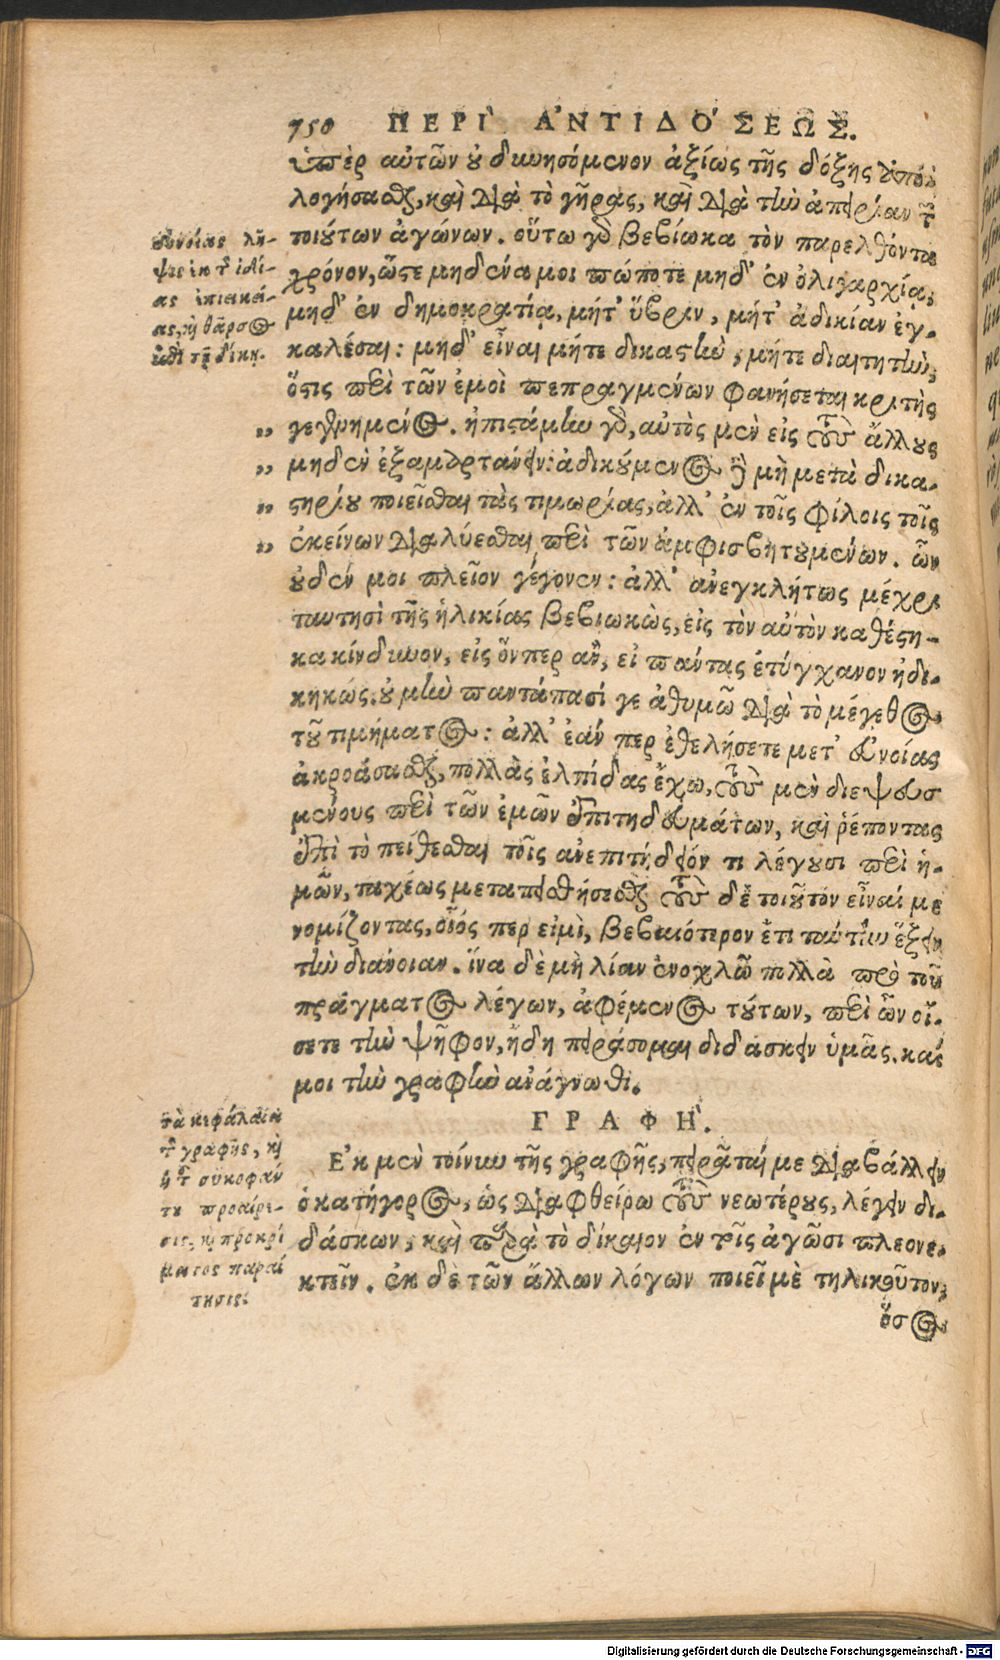 750 ΠΕΡΙ` ἈΝΤΙΔΌΣΕΩΣ.
ὑπὲρ αὐτῶν οὐ δυνησόμενον ἀξίως τῆς δόξης ἀπο-
λογήσασθαι, καὶ διὰ τὸ γῆρας, καὶ διὰ τὴν ἀπειρίαν τῶν
τοιούτων ἀγώνων. οὕτω γὰρ βεβίωκα τὸν παρελθόντα
χρόνον, ὥστε μηδένα μοι πώποτε μηδ' ἐν ὀλιγαρχίᾳ,
μηδ' ἐν δημοκρατίᾳ, μήτ' ὕβριν, μήτ' ἀδικίαν ἐγ-
καλέσαι: μηδ' εἶναι μήτε δικαστὴν, μήτε διαιτητὴν,
ὅστις περὶ τῶν ἐμοὶ πεπραγμένων φανήσεται κριτὴς
„ γεγενημένος. ἠπιστάμην γὰρ, αὐτὸς μὲν εἰς τοὺς ἄλλους
„ μηδὲν ἐξαμαρτάνειν: ἀδικούμενος δὲ μὴ μετὰ δικα-
„ στηρίου ποιεῖσθαι τὰς τιμωρίας, ἀλλ' ἐν τοῖς φίλοις τοῖς
„ ἐκείνων διαλύεσθαι περὶ τῶν ἀμφισβητουμένων. ὧν
οὐδέν μοι πλεῖον γέγονεν: ἀλλ' ἀνεγκλήτως μέχρι
ταυτησὶ τῆς ἡλικίας βεβιωκὼς, εἰς τὸν αὐτὸν καθέστη-
κα κίνδυνον, εἰς ὅνπερ ἂν, εἰ πάντας ἐτύγχανον ἠδι-
κηκώς. οὐ μὴν παντάπασί γε ἀθυμῶ διὰ τὸ μέγεθος
τοῦ τιμήματος: ἀλλ' ἐάν περ ἐθελήσετε μετ' εὐνοίας
ἀκροάσασθαι, πολλὰς ἐλπίδας ἔχω, τοὺς μὲν διεψευσ
μένους περὶ τῶν ἐμῶν ἐπιτηδευμάτων, καὶ ῥέποντας
ἐπὶ τὸ πείθεσθαι τοῖς ἀνεπιτήδειόν τι λέγουσι περὶ ἡ-
μῶν, ταχέως μεταπεισθήσεσθαι τοὺς δὲ τοιοῦτον εἶναί με
νομίζοντας, οἷός περ εἰμὶ, βεβαιότερον ἔτι ταύτην ἕξειν
τὴν διάνοιαν. ἵνα δὲ μὴ λίαν ἐνοχλῶ πολλὰ πρὸ τοῦ
πράγματος λέγων, ἀφέμενος τούτων, περὶ ὧν οἴ-
σετε τὴν ψῆφον, ἤδη πειράσομαι διδάσκειν ὑμᾶς. καί
μοι τὴν γραφὴν ἀνάγνωθι.
ΓΡΑΦΗ`.
Ἐκ μὲν τοίνυν τῆς γραφῆς, πειρᾶταί με διαβάλλειν
ὁ κατήγορος, ὡς διαφθείρω τοὺς νεωτέρους, λέγειν δι-
δάσκων, καὶ παρὰ τὸ δίκαιον ἐν τοῖς ἀγῶσι πλεονε-
κτεῖν. ἐκ δὲ τῶν ἄλλων λόγων ποιεῖ μὲ τηλικοῦτον,
ὅσος
εὐνοίας λῆ-
ψις ἐκ τ ἰδί-
ας ἐπιεικεί-
ας, καὶ θάρσος
ἐπὶ τῇ δίκῃ.
τὰ κεφάλαια
τ γραφῆς, καὶ
ἡ τ συκοφάν
του προαίρε-
σις, καὶ προκρί
ματος παραί
τησις.
Digitalisierung gefördert durch die Deutsche Forschungsgemeinschaft - DFG